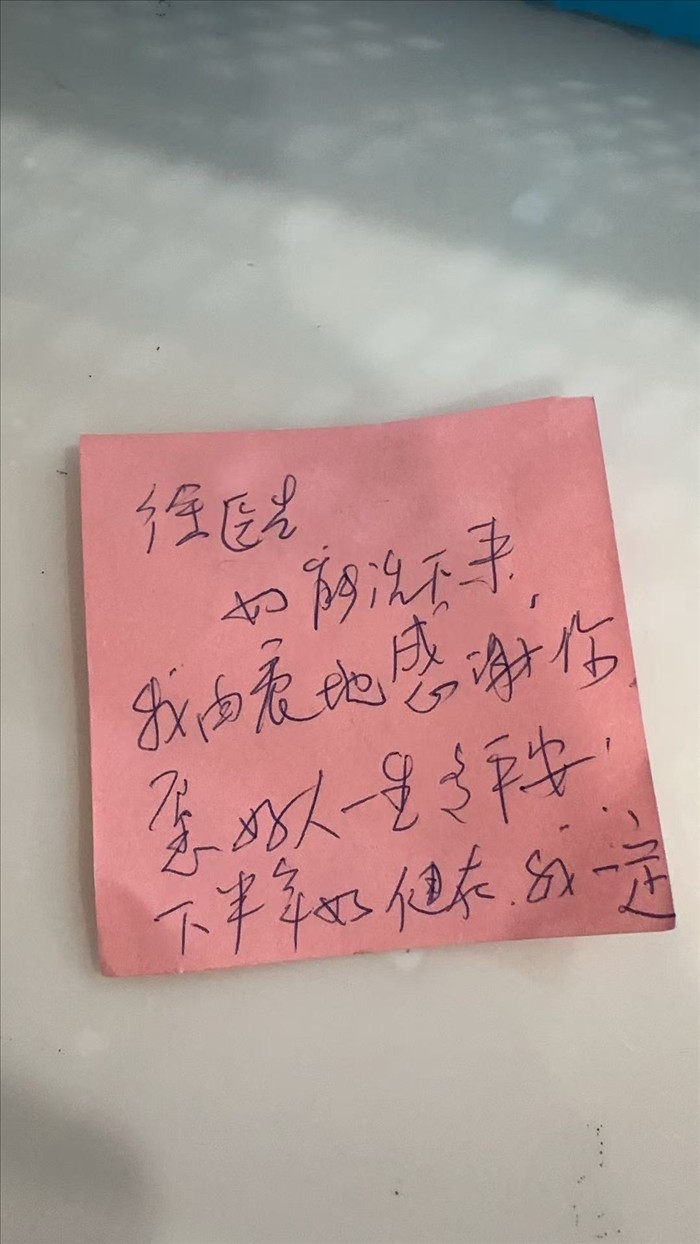 徐医生
如能活下来,
我由衷地感谢你,
愿好人一生多平安!
下半年如健在,我一定